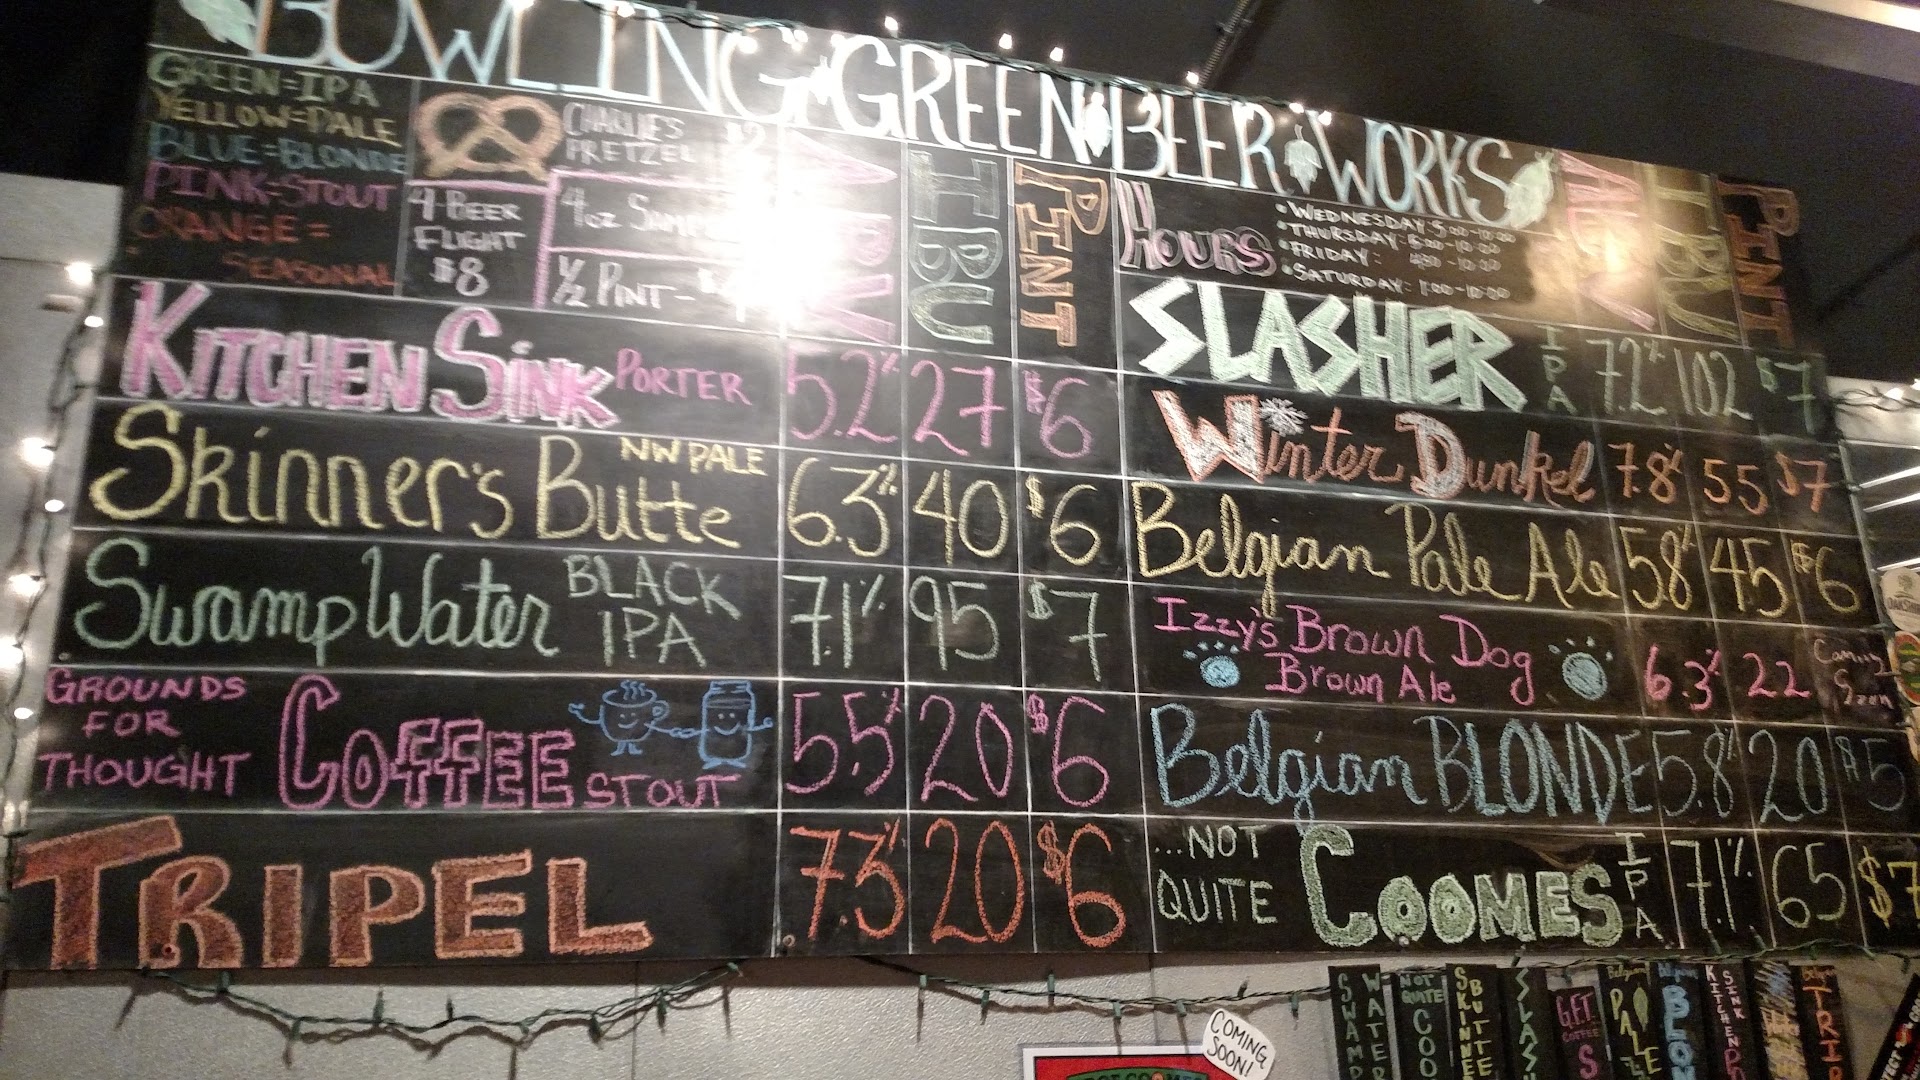 BOWLING GREEN BEER WORKS
GREEN=IPA
YELLOW=PALE
BLUE=BLONDE
PINK=STOUT
ORANGE=
SEASONAL
CHARLIE'S
PRETZEL $2
4 BEER
FLIGHT
$8
4oz
1/2 PINT-
ABV IBU PINT
HOURS
•WEDNESDAY: 5:00-10:00
•THURSDAY: 5:00-10:00
•FRIDAY: 4:30-10:00
•SATURDAY: 1:00-10:00
ABV IBU PINT
KITCHEN SINK PORTER 5.2% 27 $6
Skinner's Butte NW PALE 6.3% 40 $6
Swamp Water BLACK IPA 7.1% 95 $7
GROUNDS
FOR
THOUGHT COFFEE STOUT 5.5% 20 $6
TRIPEL 7.3% 20 $6
SLASHER IPA 7.2% 102 $7
Winter Dunkel 7.8% 55 $7
Belgian Pale Ale 5.8% 45 $6
Izzy's Brown Dog
Brown Ale 6.3% 22 Coming
Soon
Belgian BLONDE 5.8% 20 $5
...NOT
QUITE COOMES IPA 7.1% 65 $7
COMING
SOON!
SWAMP
WATER
NOT
QUITE
COO
SKINNE
BUTTE
SLAS
G.F.T.
COFFEE
S
Belgian
PALE
Belgian
BLON
KITCHEN
SINK
TRI